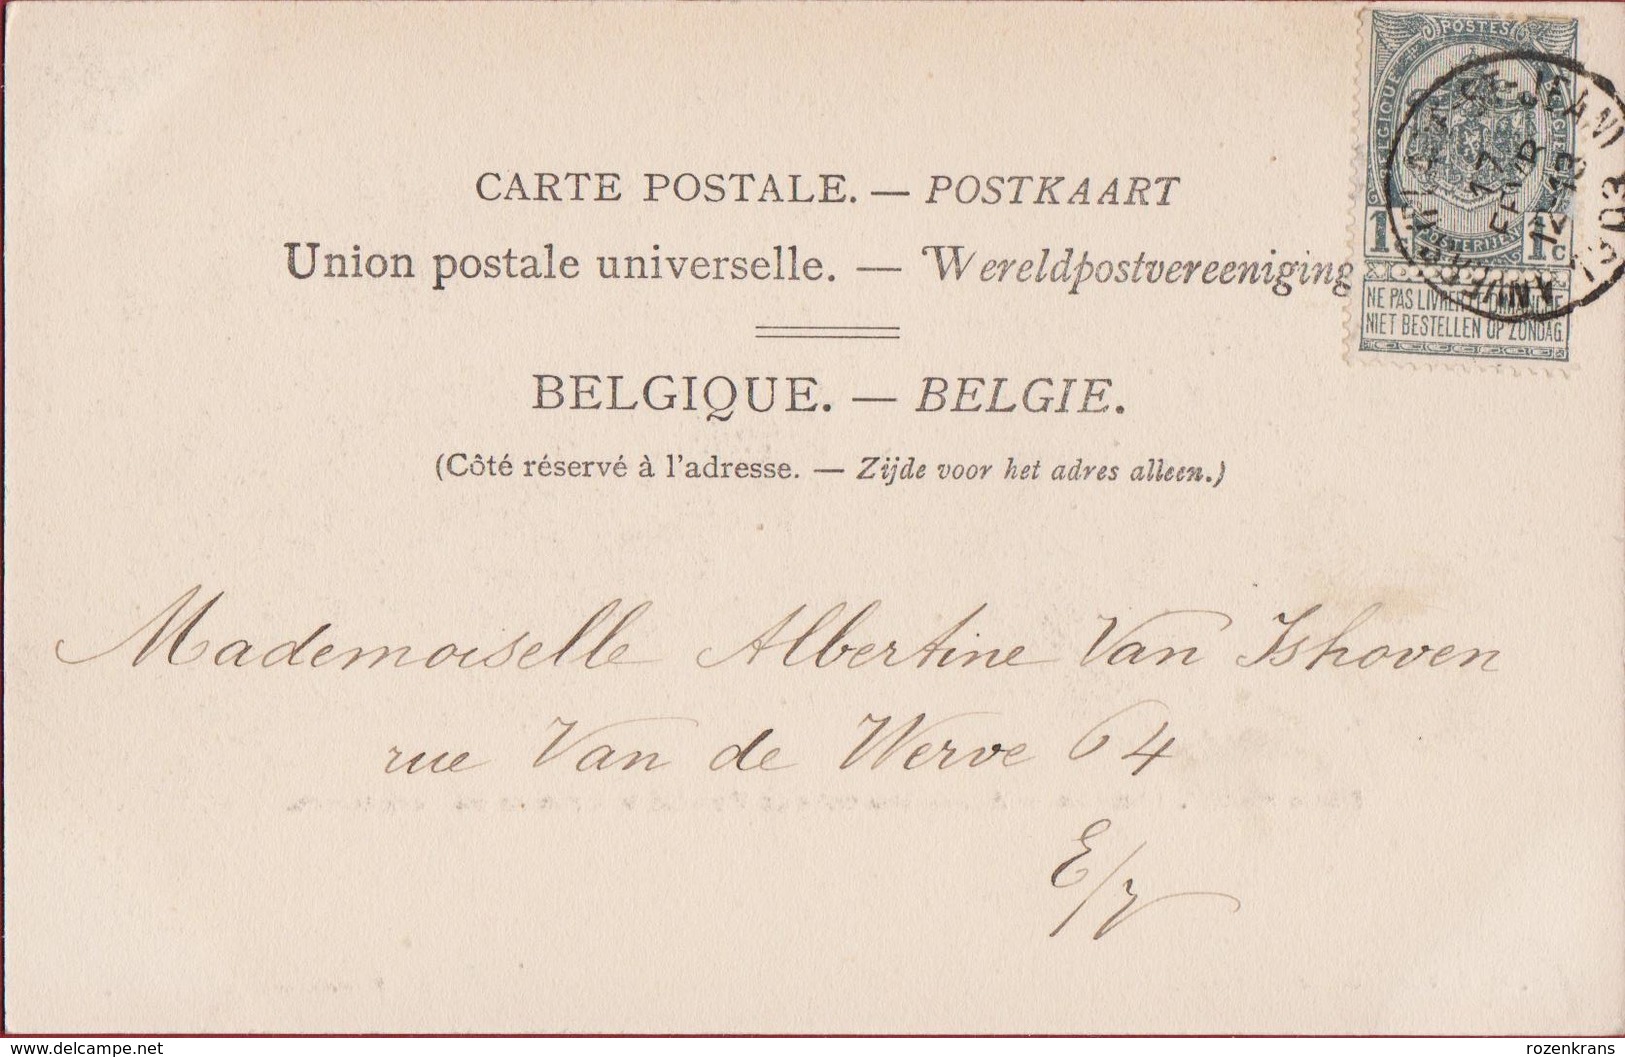 POSTES
BELGIQUE BELGIE
POSTERIJEN
1c 1c
NE PAS LIVRER LE DIMANCHE
NIET BESTELLEN OP ZONDAG
ST-JEAN
17
FEVR
12-13
1903
ANVERS
CARTE POSTALE. — POSTKAART
Union postale universelle. — Wereldpostvereeniging
BELGIQUE. — BELGIE.
(Côté réservé à l'adresse. — Zijde voor het adres alleen.)
Mademoiselle Albertine Van Ishoven
rue Van de Werve 64
E/
www.delcampe.net
rozenkrans